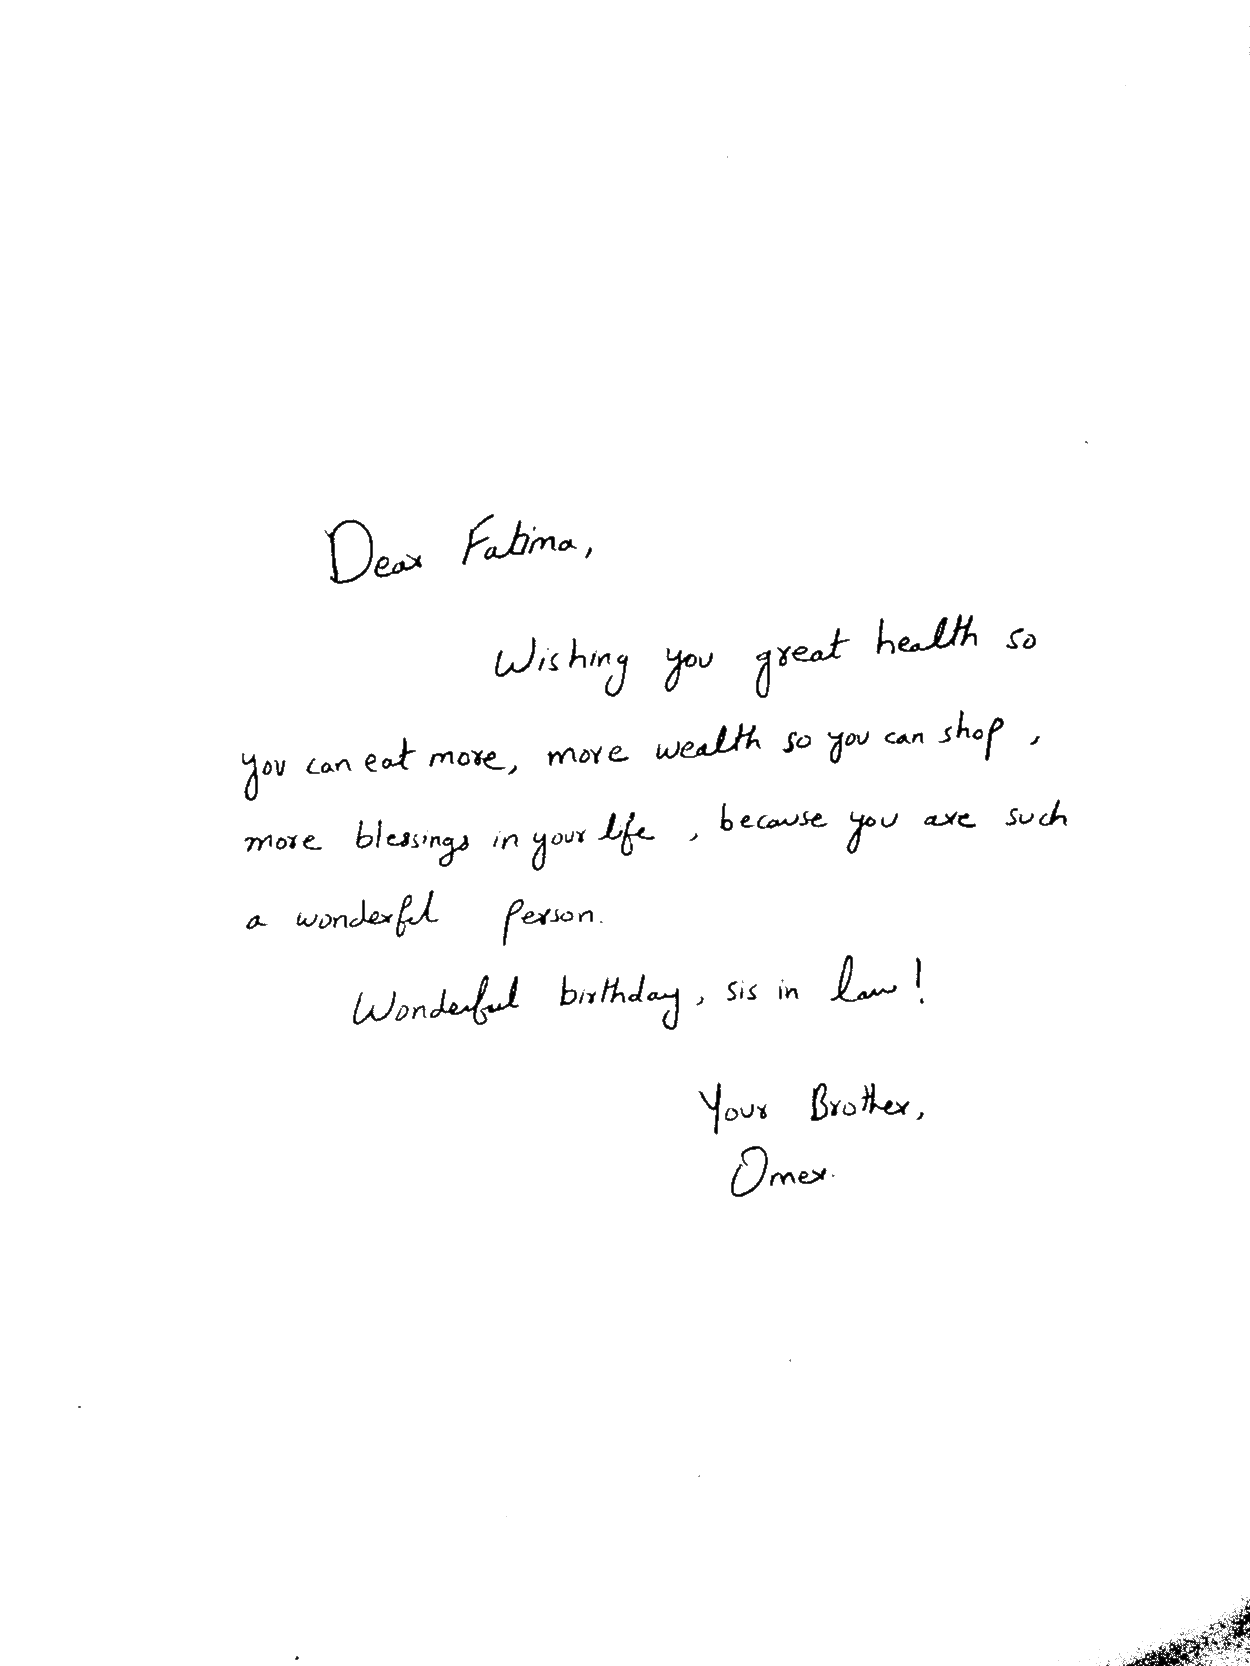 Dear Fatima,
Wishing you great health so
you can eat more, more wealth so you can shop,
more blessings in your life, because you are such
a wonderful person.
Wonderful birthday, sis in law!
Your Brother,
Omer.